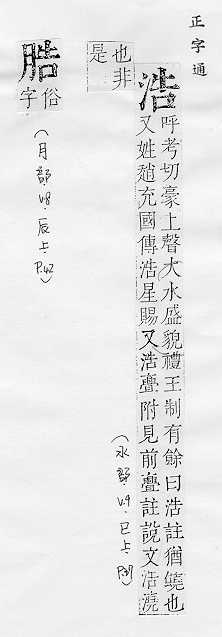 正字通
浩
呼考切豪上聲大水盛貌禮王制有餘曰浩註猶饒也
又姓趙充國傳浩星賜又浩亹附見前亹註說文浩澆
也非
是
(水部V.9.巳上.P.37)
䏆俗
字
(月部V.8.辰上.P.42)